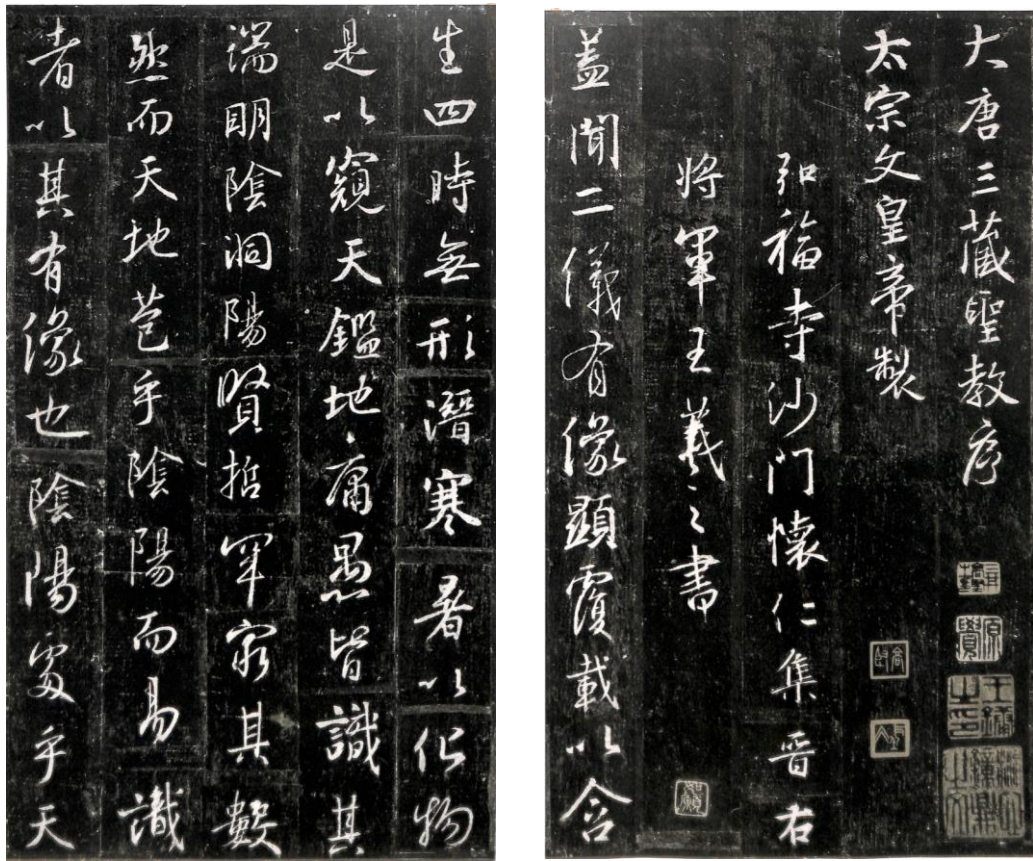 大唐三藏聖教序
太宗文皇帝製
弘福寺沙門懷仁集晋右
将軍王羲之書
蓋聞二儀有像顯覆載以含
生四時無形潛寒暑以化物
是以窺天鑑地庸愚皆識其
端明陰洞陽賢哲罕窮其數
然而天地苞乎陰陽而易識
者以其有像也陰陽處乎天